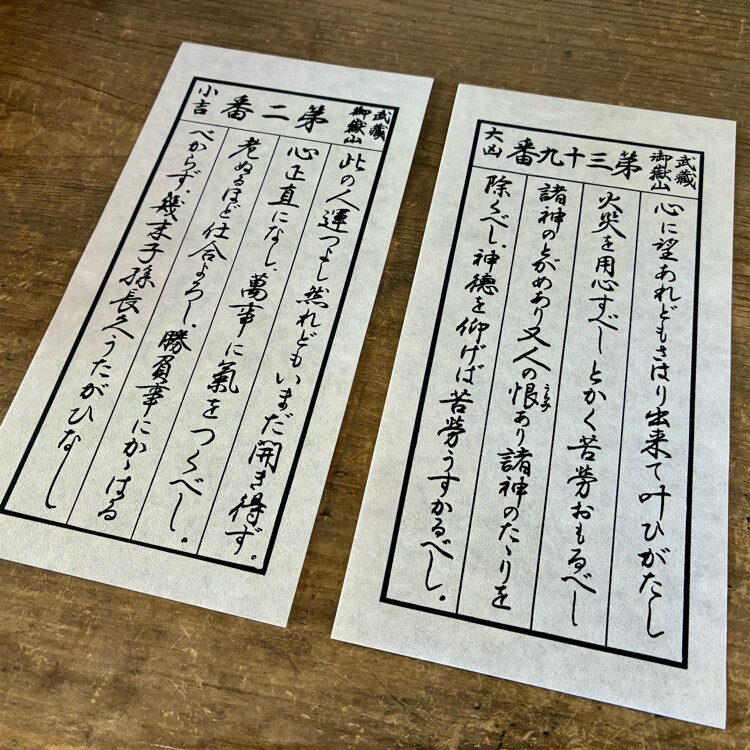 武蔵
御嶽山
第二番
小吉
此の人運つよし然れどもいまだ開き得ず。
心正直になし、萬事に氣をつくべし。
老ぬるほど仕合よろし、勝負事にかゝはる
べからず、幾末子孫長久うたがひなし
武蔵
御嶽山
第三十九番
大凶
心に望あれどもさはり出来て叶ひがたし
火災を用心すべしとかく苦労おもるべし
諸神のとがめあり又人の恨あり諸神のたゝりを
うらみ
除くべし、神徳を仰げば苦労うすかるべし。